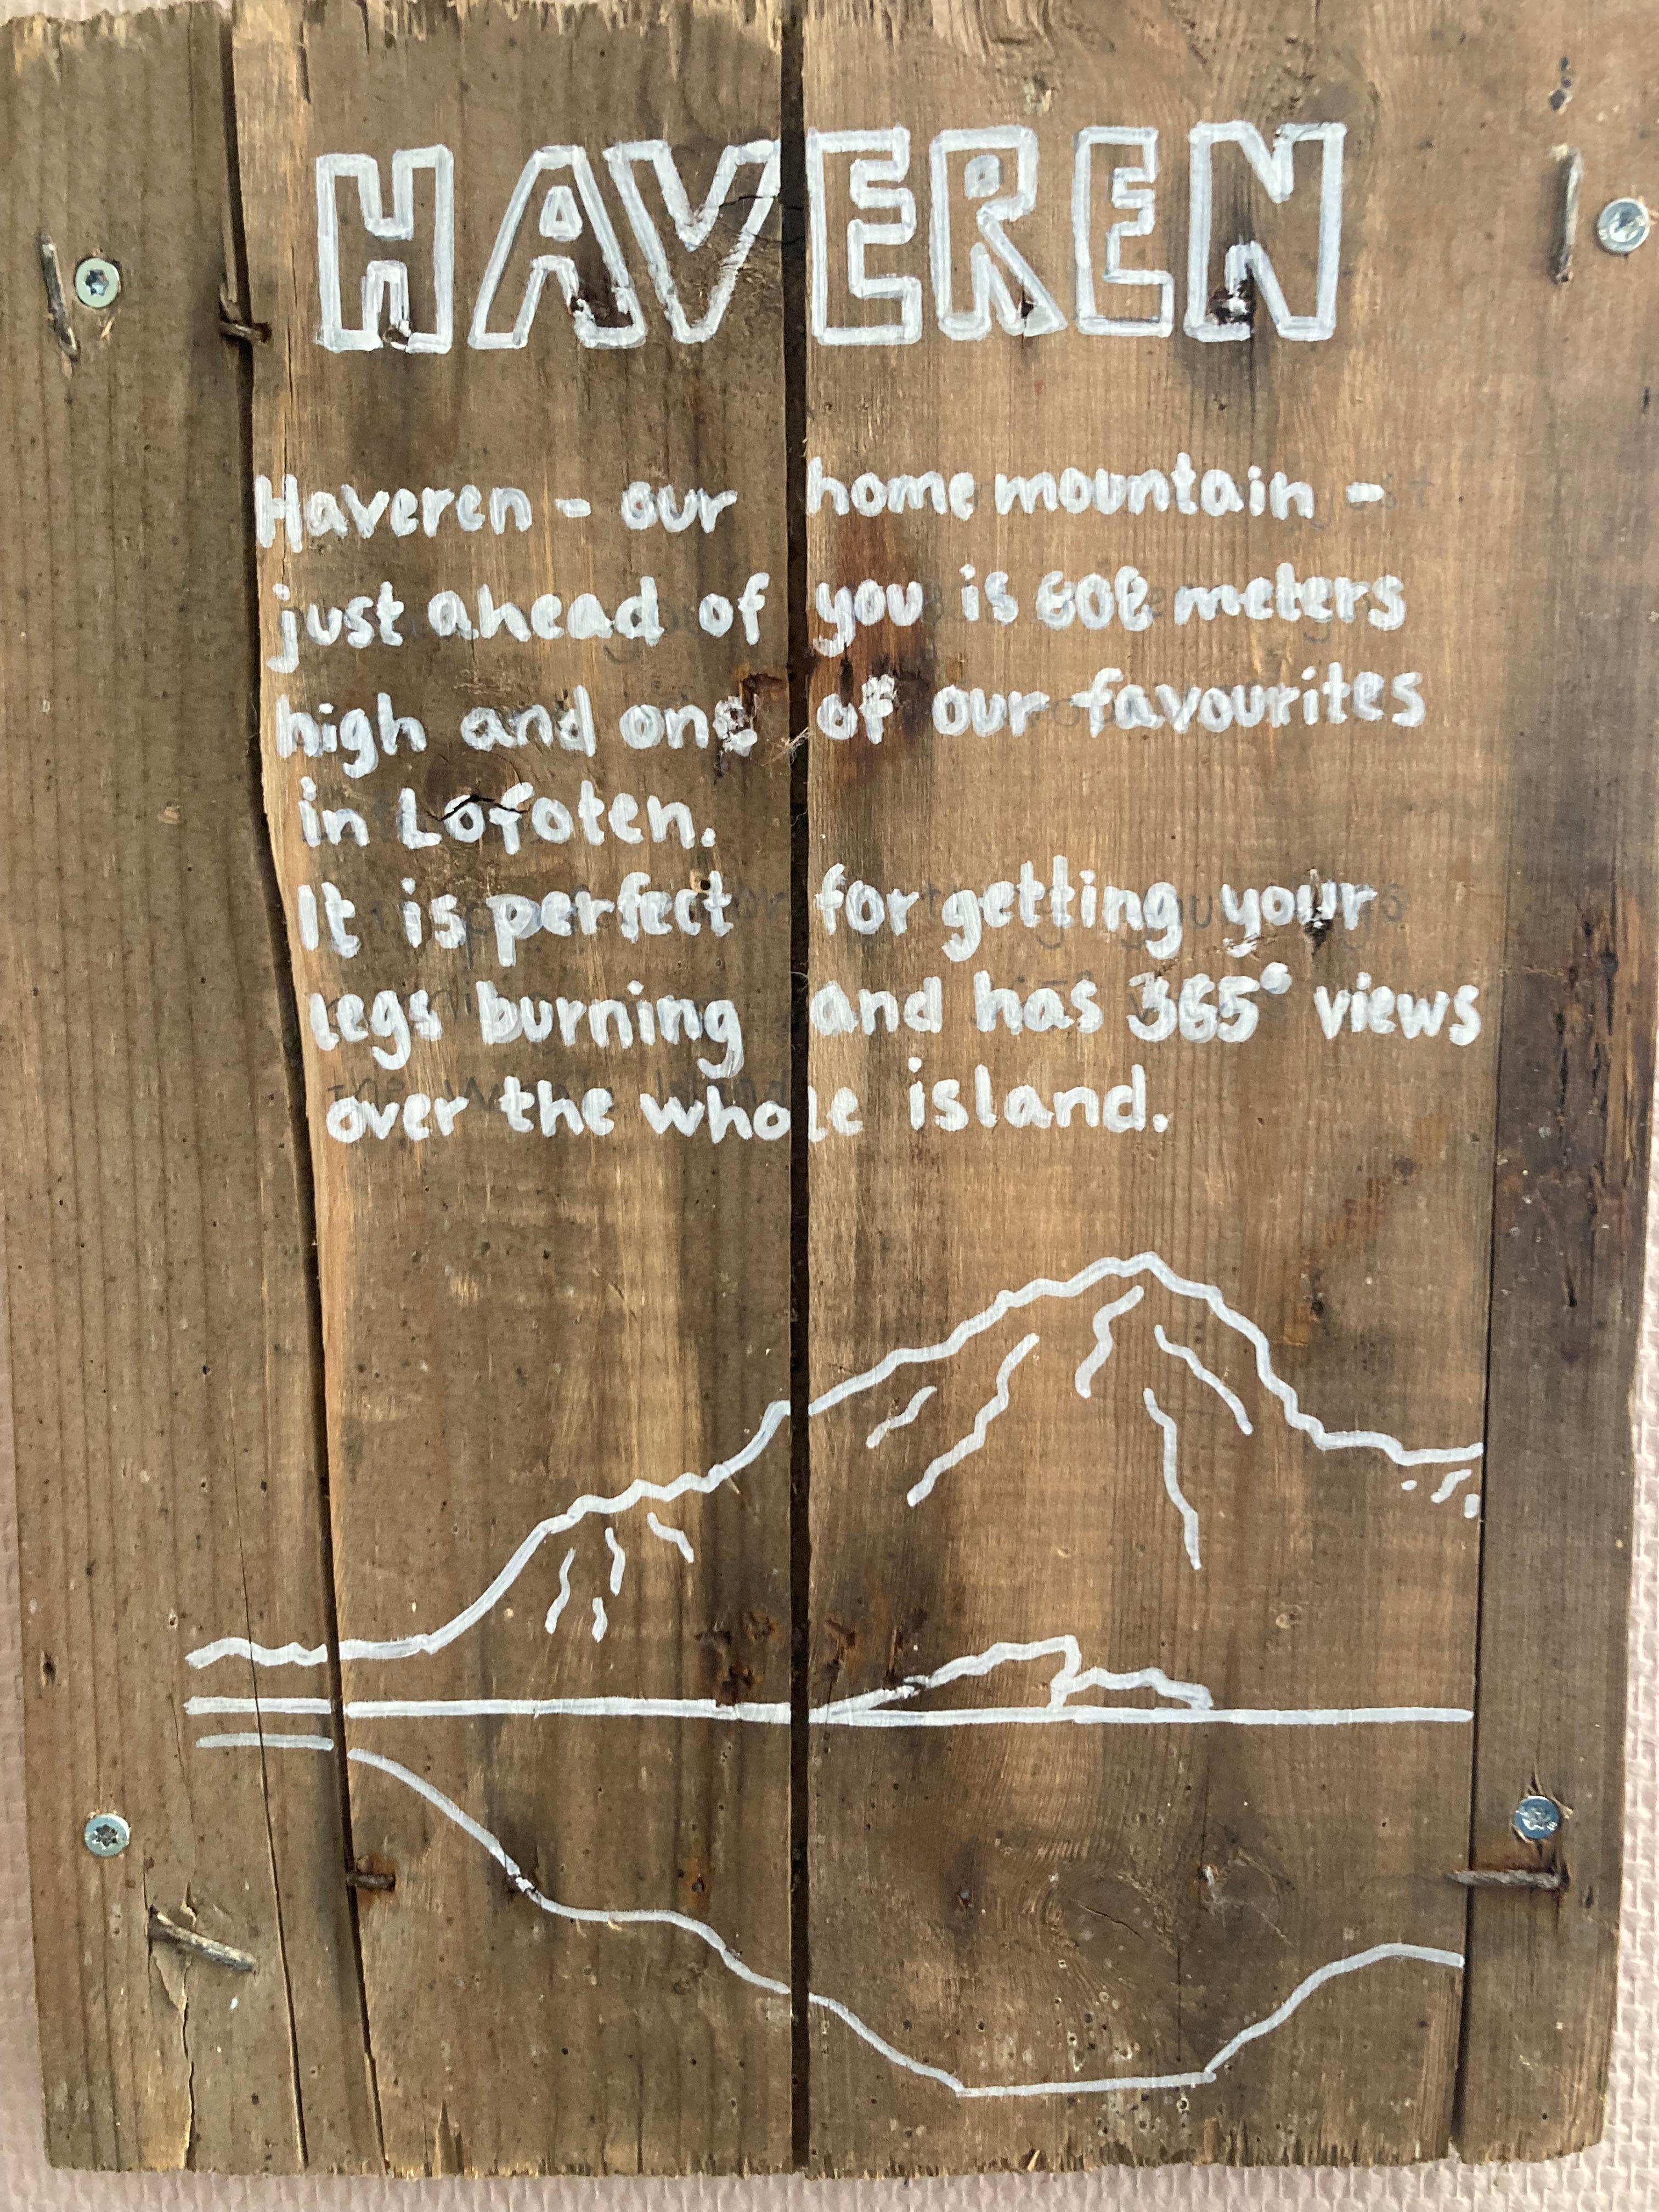 HAVEREN
Haveren - our home mountain -
just ahead of you is 808 meters
high and one of our favourites
in Lofoten.
It is perfect for getting your
legs burning and has 365° views
over the whole island.